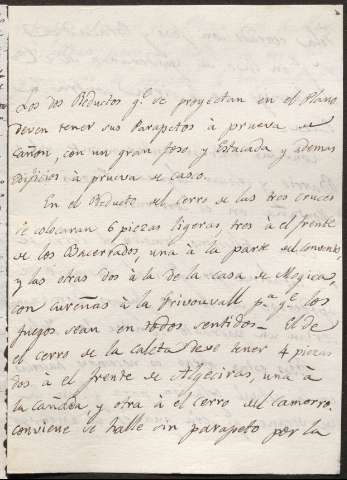 Los dos Reductos q.e se proyectan en el Plano
deven tener sus Parapetos à prueva de
Cañon, con un gran foso, y Estacada y ademas
Edificios à prueva de caso.
En el Reducto del Cerro de las tres cruces
se colocaran 6 piezas ligeras, tres à el frente
de los Bacerrados, una à la parte del convento,
y las otras dos à la de la casa de Mogicas,
con cureñas à la Grivouvall p.a q.e los
fuegos sean en todos sentidos_ El de
el cerro de la caleta deve tener 4 piezas
dos à el frente de Algeciras, una à
la cañada, y otra à el cerro del camorro.
conviene se halle sin parapeto por la